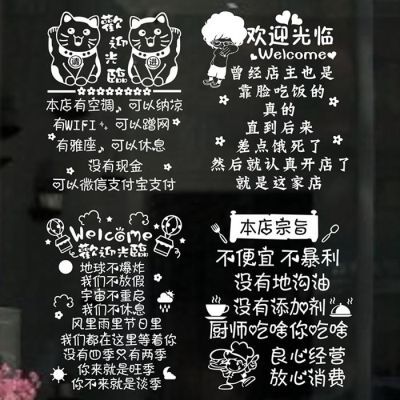 歡迎光臨
本店有空调,可以纳凉
有WIFI,可以蹭网
有雅座,可以休息
没有现金
可以微信支付宝支付
欢迎光临
Welcome
曾经店主也是
靠脸吃饭的
真的
直到后来
差点饿死了
然后就认真开店了
就是这家店
Welcome
歡迎光臨
地球不爆炸
我们不放假
宇宙不重启
我们不休息
风里雨里节日里
我们都在这里等着你
没有四季只有两季
你来就是旺季
你不来就是淡季
本店宗旨
不便宜 不暴利
没有地沟油
没有添加剂
厨师吃啥你吃啥
良心经营
放心消费